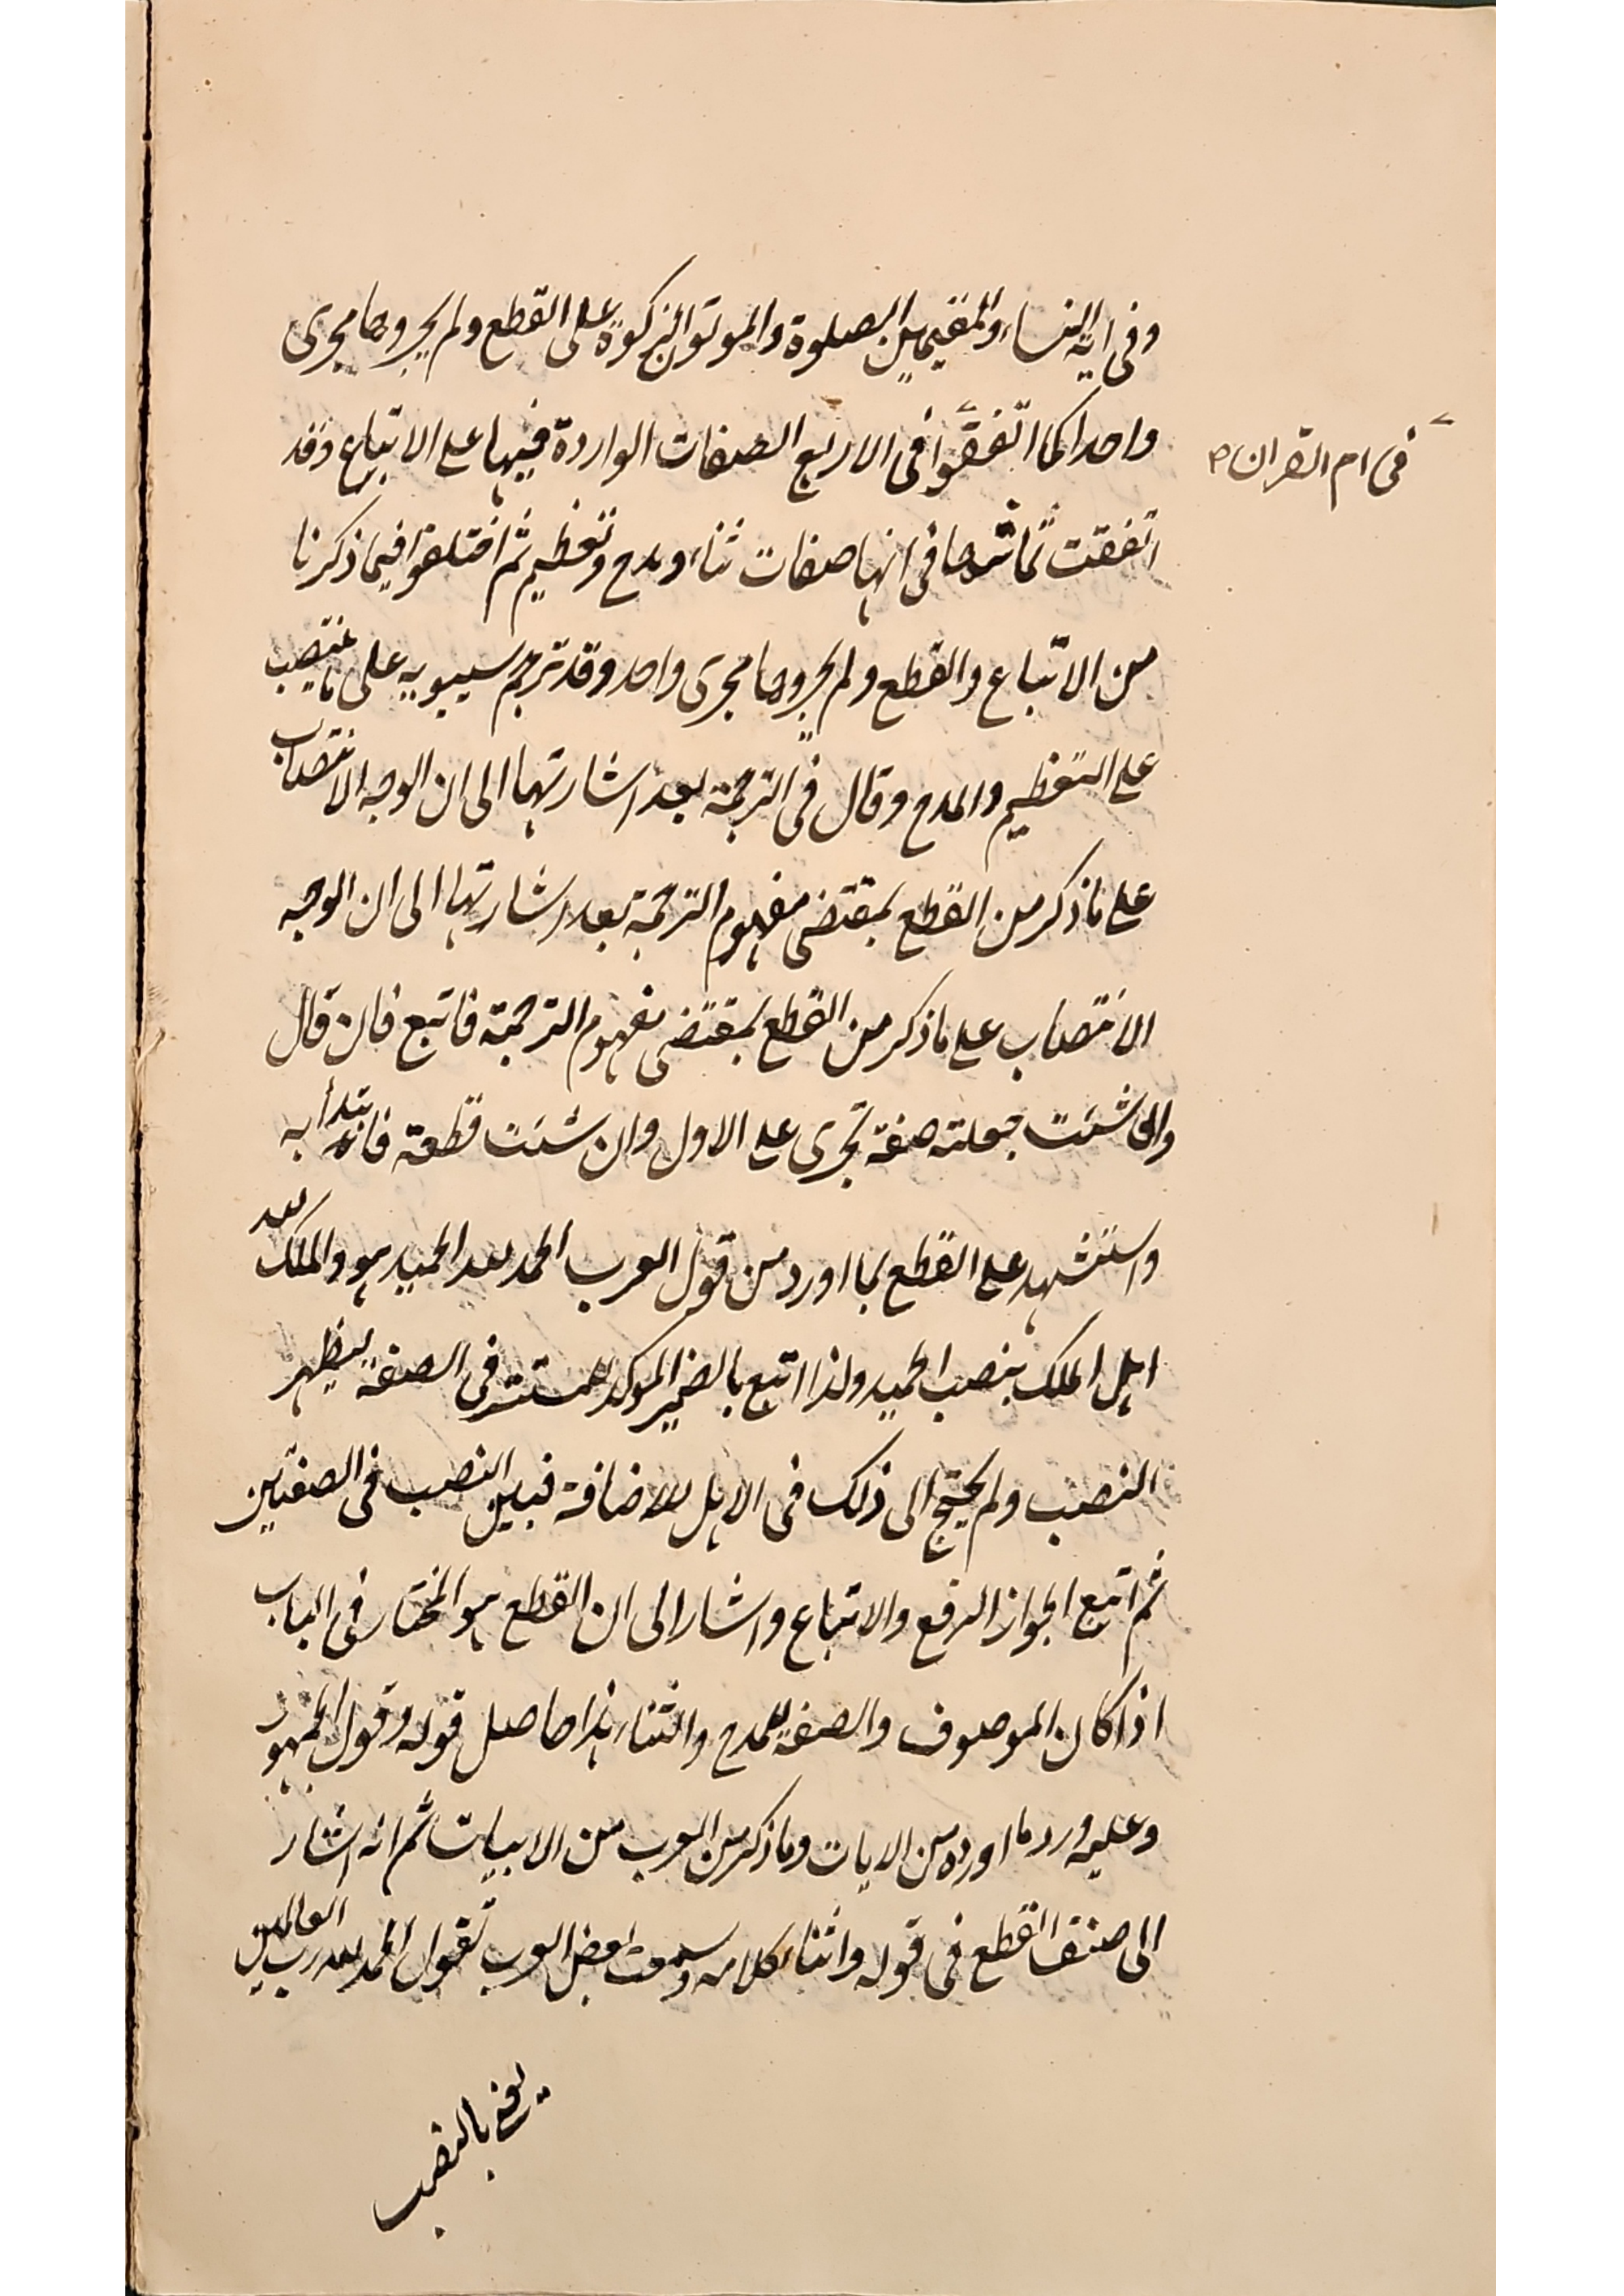 وفى اية النساء والمقيمين الصلوة والموتون الزكوة على القطع ولم يجروها مجرى
واحدا كما اتفقوا فى الاربع الصفات الواردة فيها على الاتباع وقد
فى ام القران
اتفقت كما تراها فى انها صفات ثناء ومدح وتعظيم ثم اختلفوا فيما ذكرنا
من الاتباع والقطع ولم يجروها مجرى واحد وقد ترجم سيبويه على ما ينتصب
على التعظيم والمدح وقال فى الترجمة بعد اشارتها الى ان الوجه الانتصاب
على ما ذكر من القطع بمقتضى مفهوم الترجمة بعد اشارتها الى ان الوجه
الانتصاب على ما ذكر من القطع بمقتضى مفهوم الترجمة فاتبع فان قال
وان شئت جعلته صفة تجرى على الاول وان شئت قطعة فابتدأ به
واستشهد على القطع بما اورد من قول العرب الحمد لله الحميد هو والملك لله
اهل الملك بنصب الحميد ولذا اتبع بالضمير الموكد للمستتر فى الصفة ليظهر
النصب ولم يحتج الى ذلك فى الاهل للاضافة فبين النصب فى الصفتين
ثم اتبع الجواز الرفع والاتباع واشار الى ان القطع هو المختار فى الباب
اذا كان الموصوف والصفة للمدح والثناء هذا حاصل قوله وقول الجمهور
وعليه ورد ما اورده من الايات وما ذكر من العرب من الابيات ثم انه اشار
الى صنف القطع فى قوله واثناء كلامه وسمعت بعض العرب تقول الحمد لله رب العالمين
بالنصب